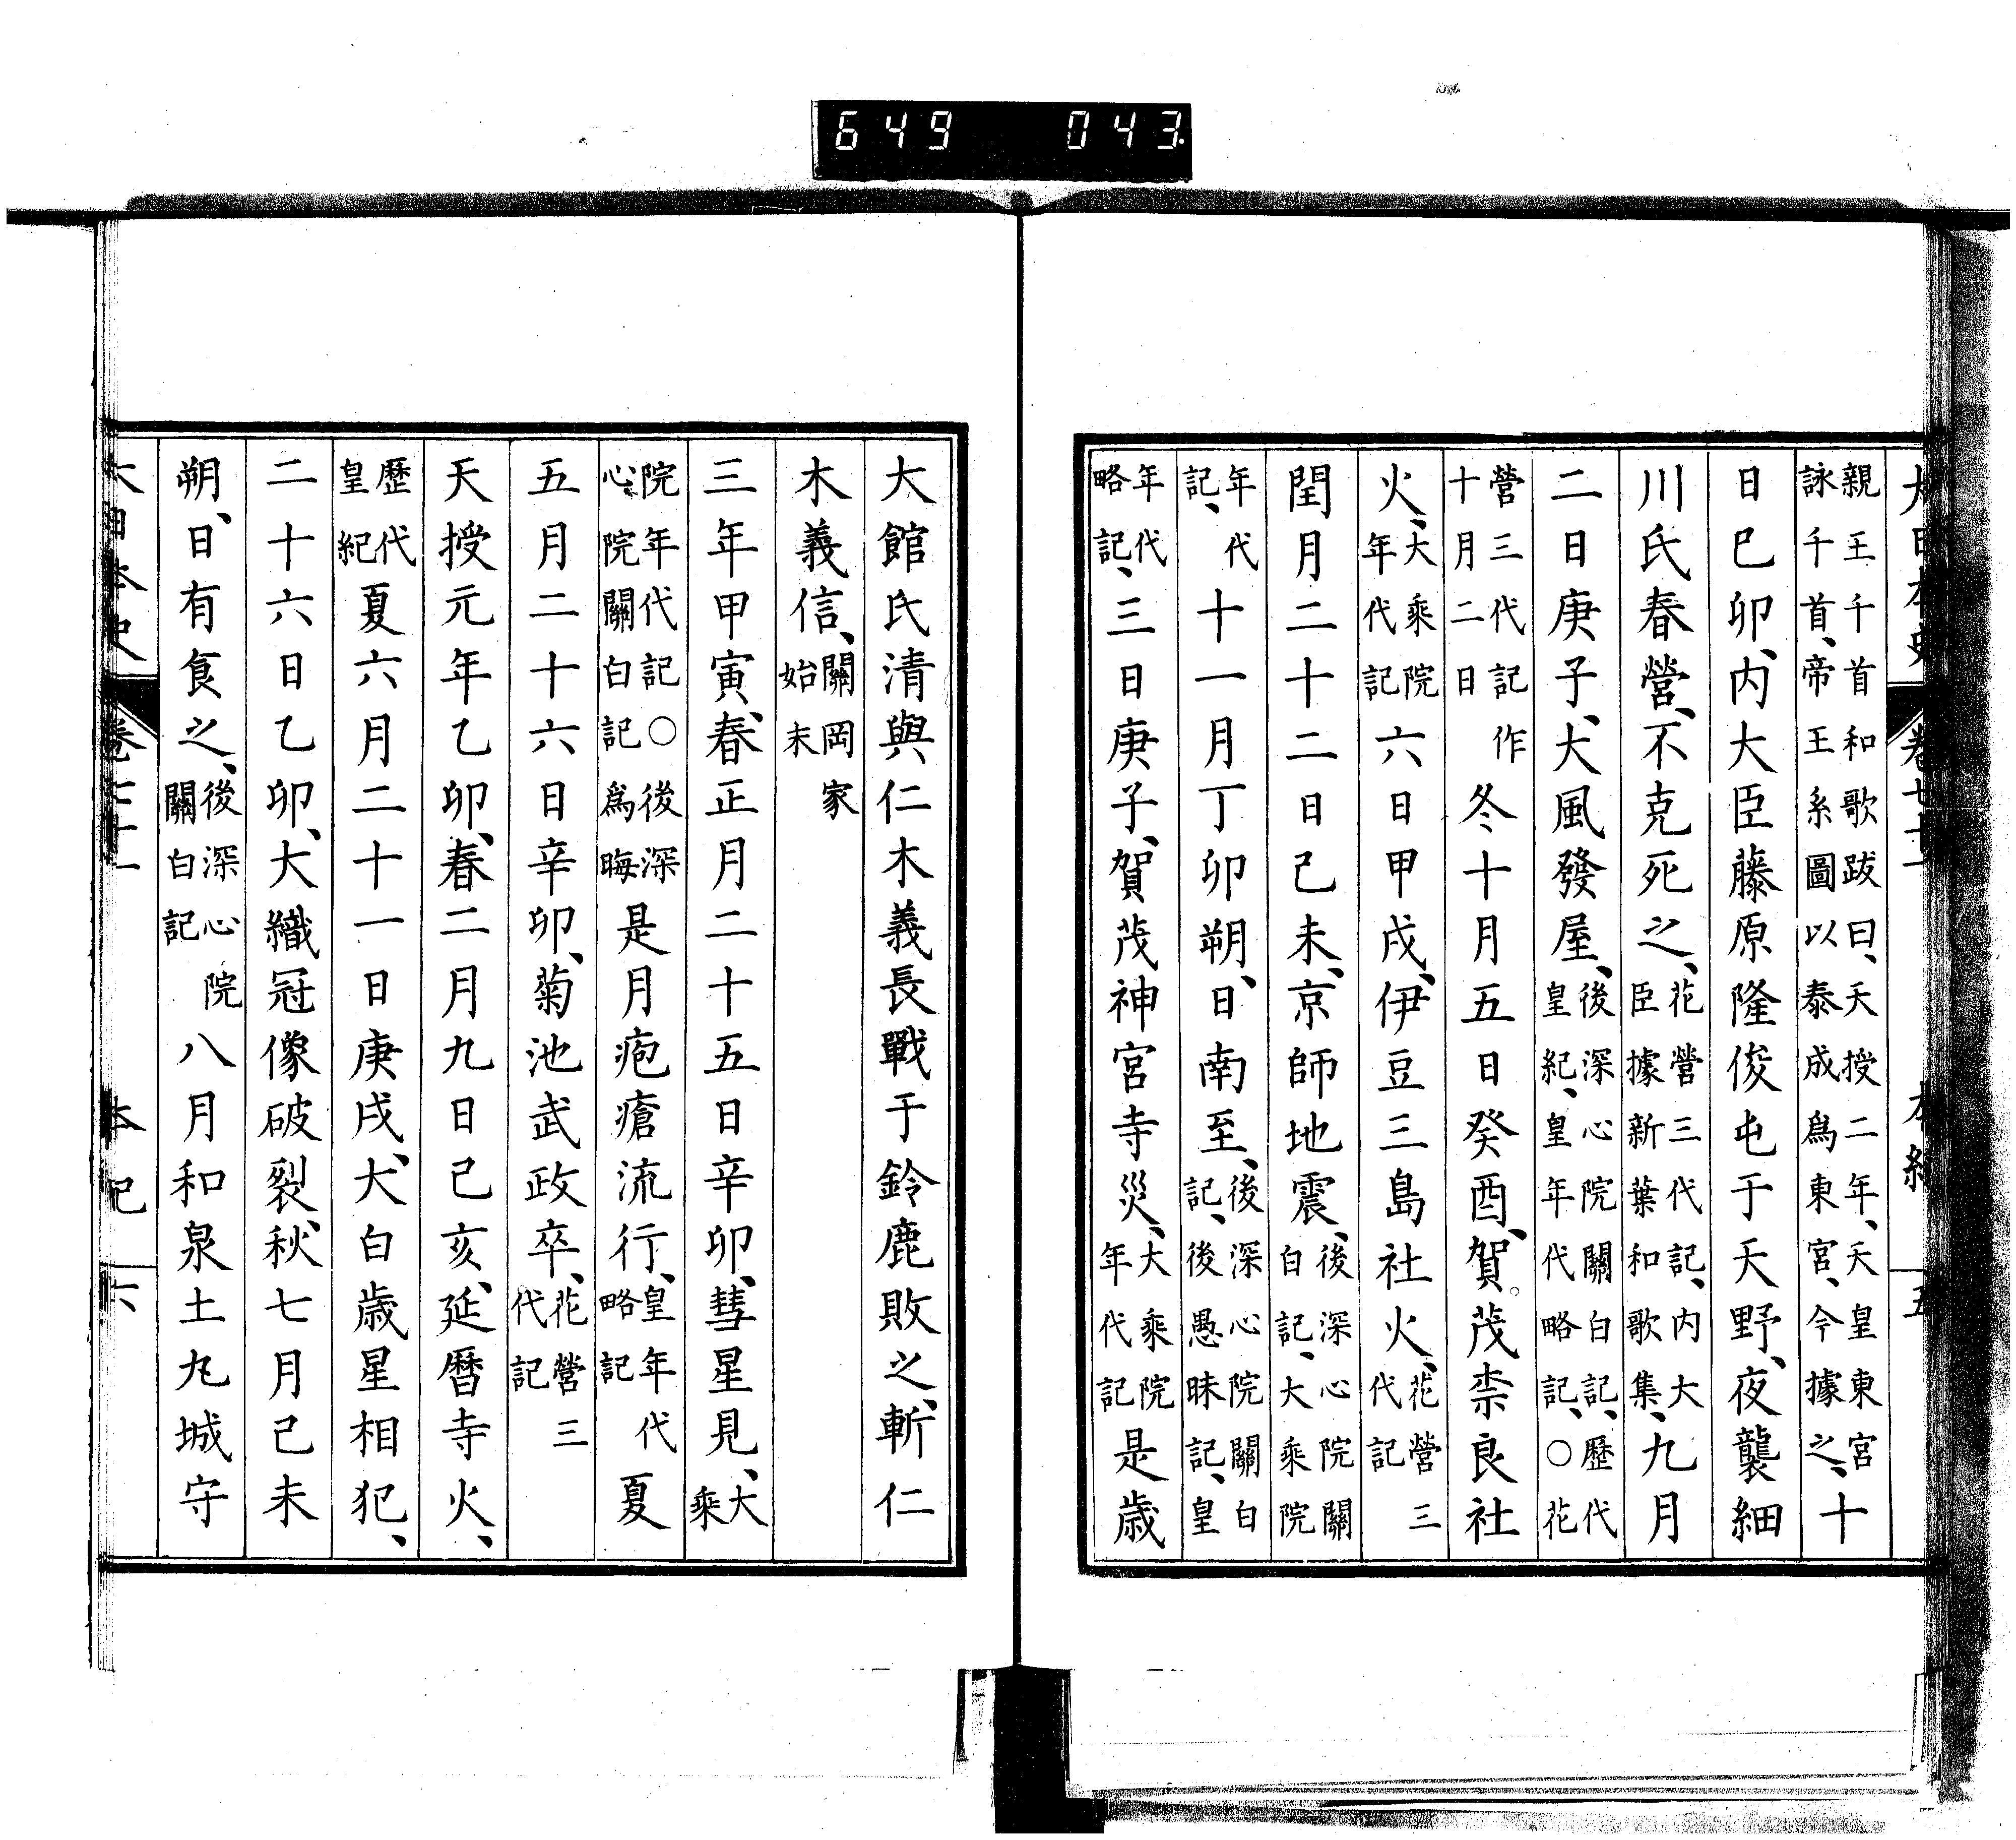 649 043
大日本史 卷七十一 本紀 五
親王千首和歌跋曰、天授二年、天皇東宮
詠千首、帝王系圖以泰成爲東宮、今據之、十
日己卯、內大臣藤原隆俊屯于天野、夜襲細
川氏春營、不克死之、花營三代記、內大
臣據新葉和歌集、九月
二日庚子、大風發屋、後深心院關白記、歷代
皇紀、皇年代略記、○花
營三代記作
十月二日冬十月五日癸酉、賀茂柰良社
火、大乘院
年代記六日甲戌、伊豆三島社火、花營三
代記
閏月二十二日己未、京師地震、後深心院關
白記、大乘院
年代
記、十一月丁卯朔、日南至、後深心院關白
記、後愚昧記、皇
年代
略記、三日庚子、賀茂神宮寺災、大乘院
年代記是歲
大館氏清與仁木義長戰于鈴鹿敗之、斬仁
木義信、關岡家
始末
三年甲寅、春正月二十五日辛卯、彗星見、大
乘
院年代記○後深
心院關白記爲晦是月疱瘡流行、皇年代
略記夏
五月二十六日辛卯、菊池武政卒、花營三
代記
天授元年乙卯、春二月九日己亥、延曆寺火、
歷代
皇紀夏六月二十一日庚戌、太白歲星相犯、
二十六日乙卯、大織冠像破裂、秋七月己未
朔、日有食之、後深心院
關白記八月和泉土丸城守
大日本史 卷七十一 本紀 六